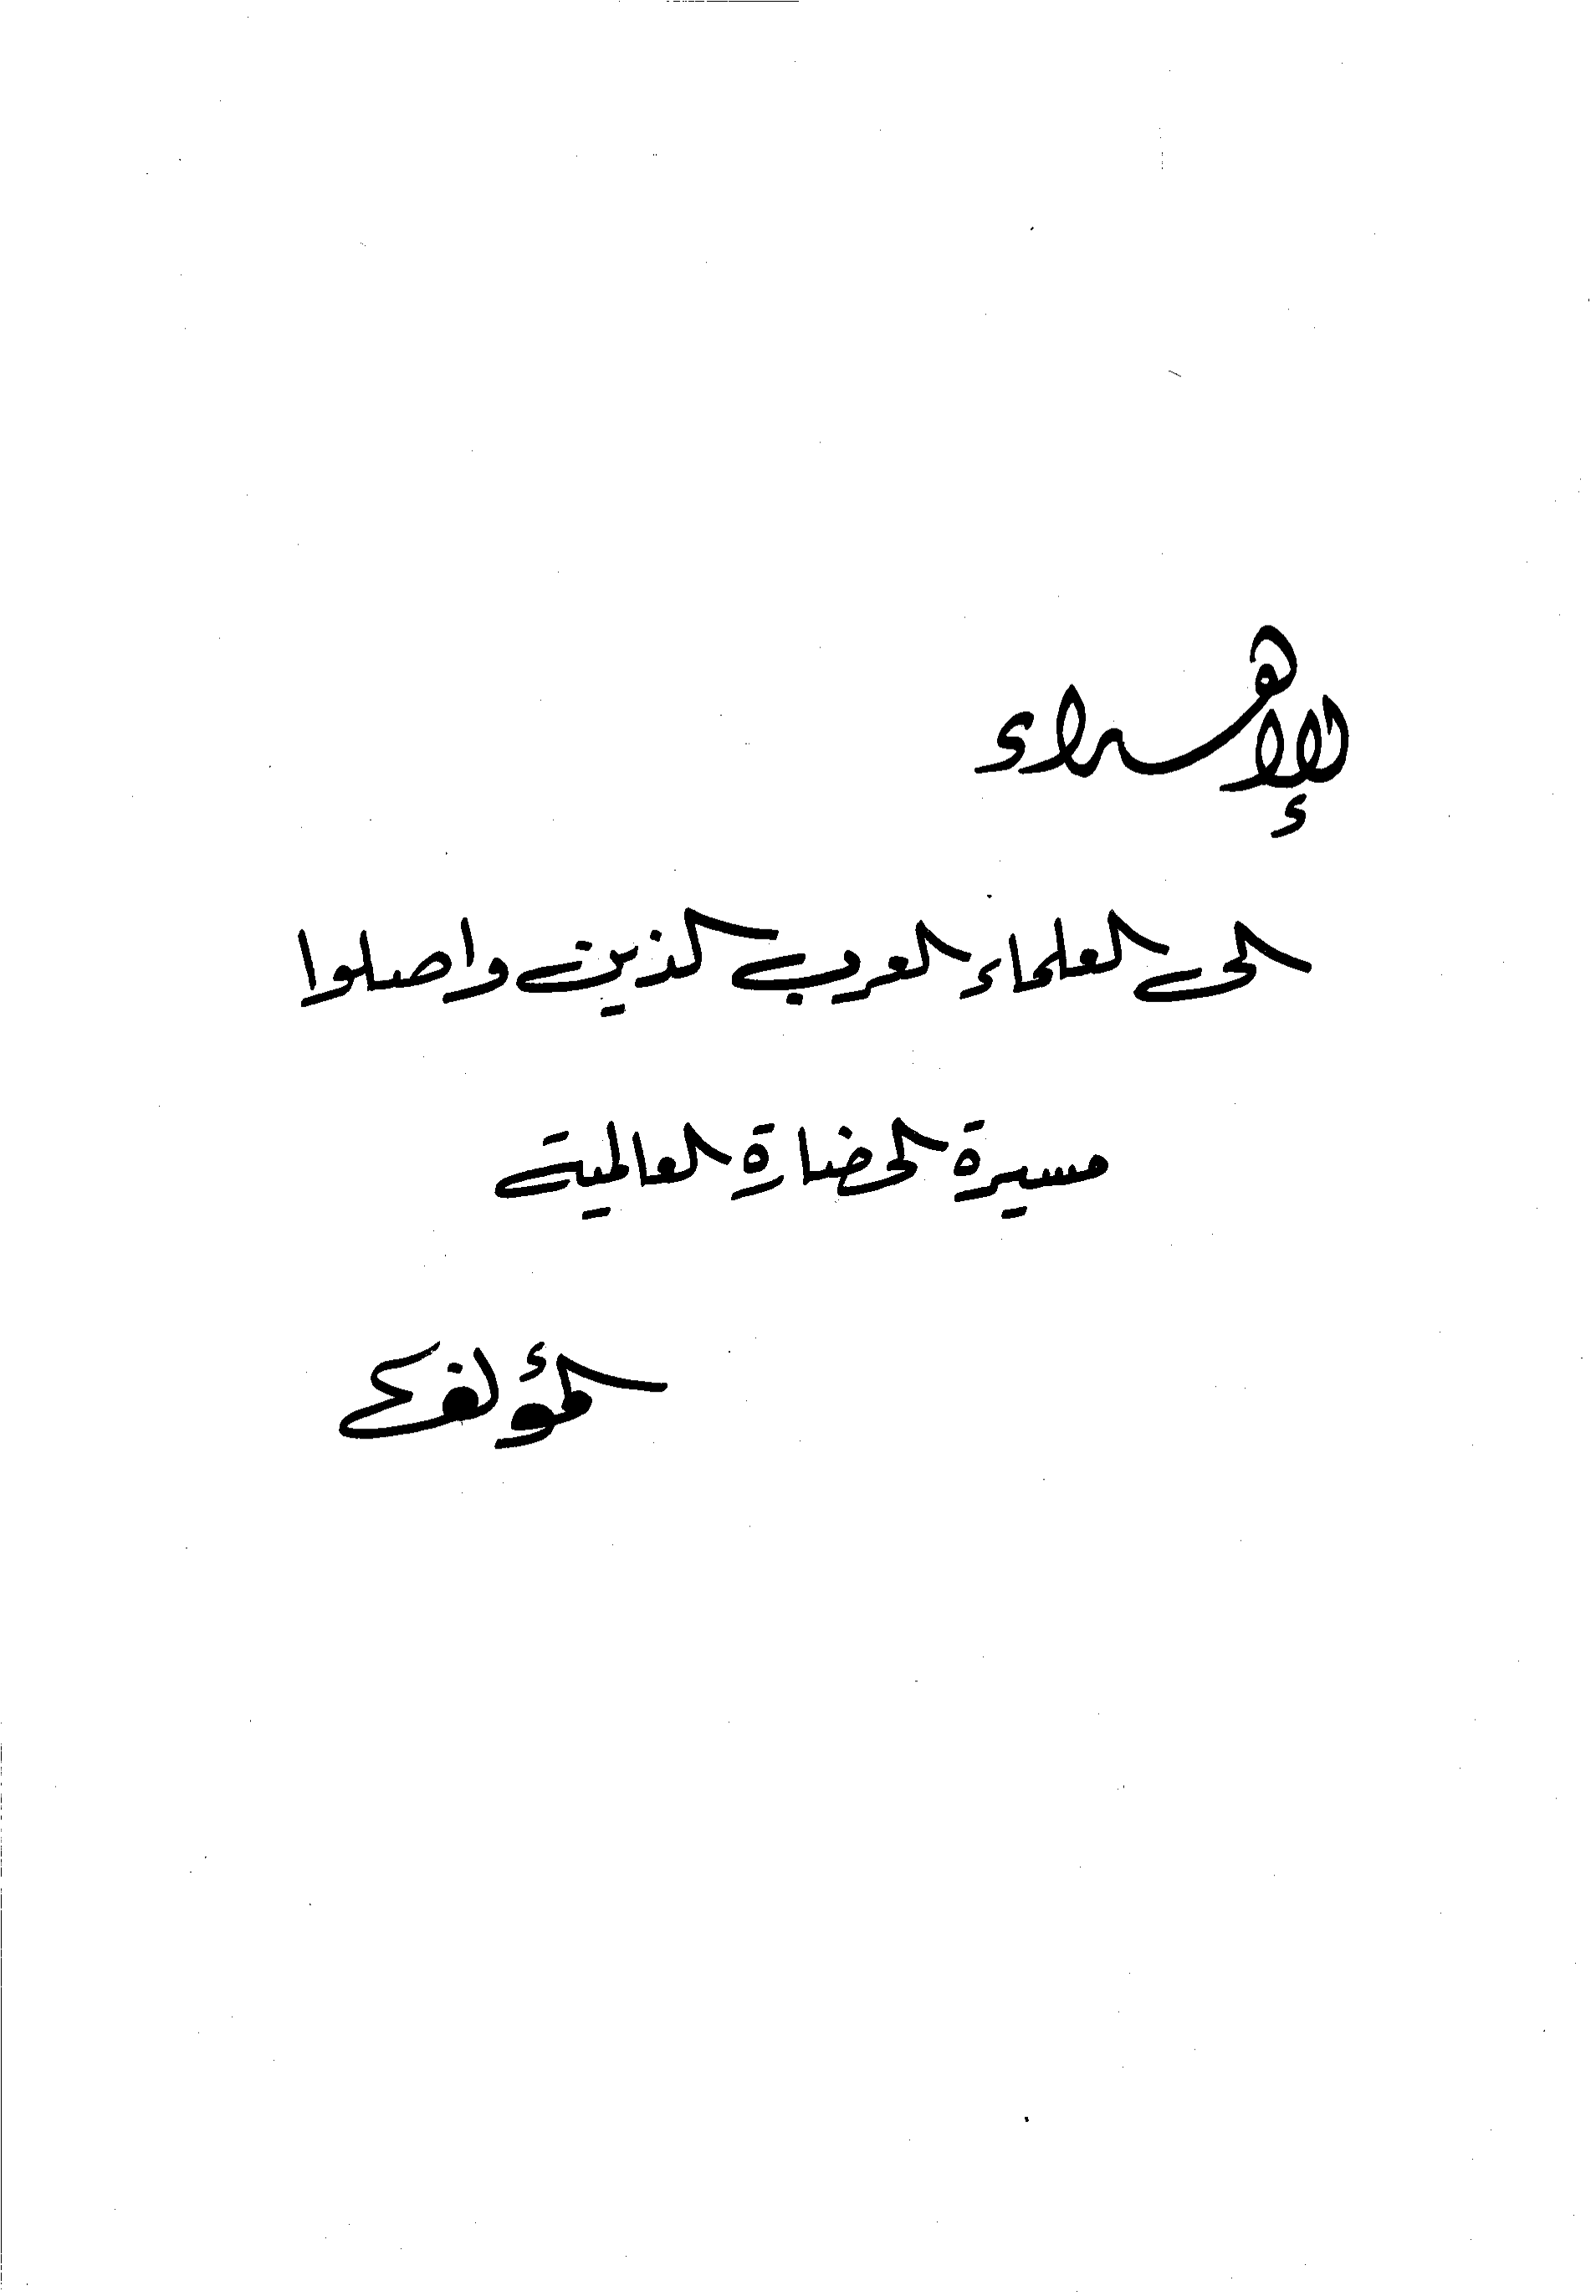 الإهداء
الى العلماء العرب الذين واصلوا
مسيرة الحضارة العالمية
المؤلف